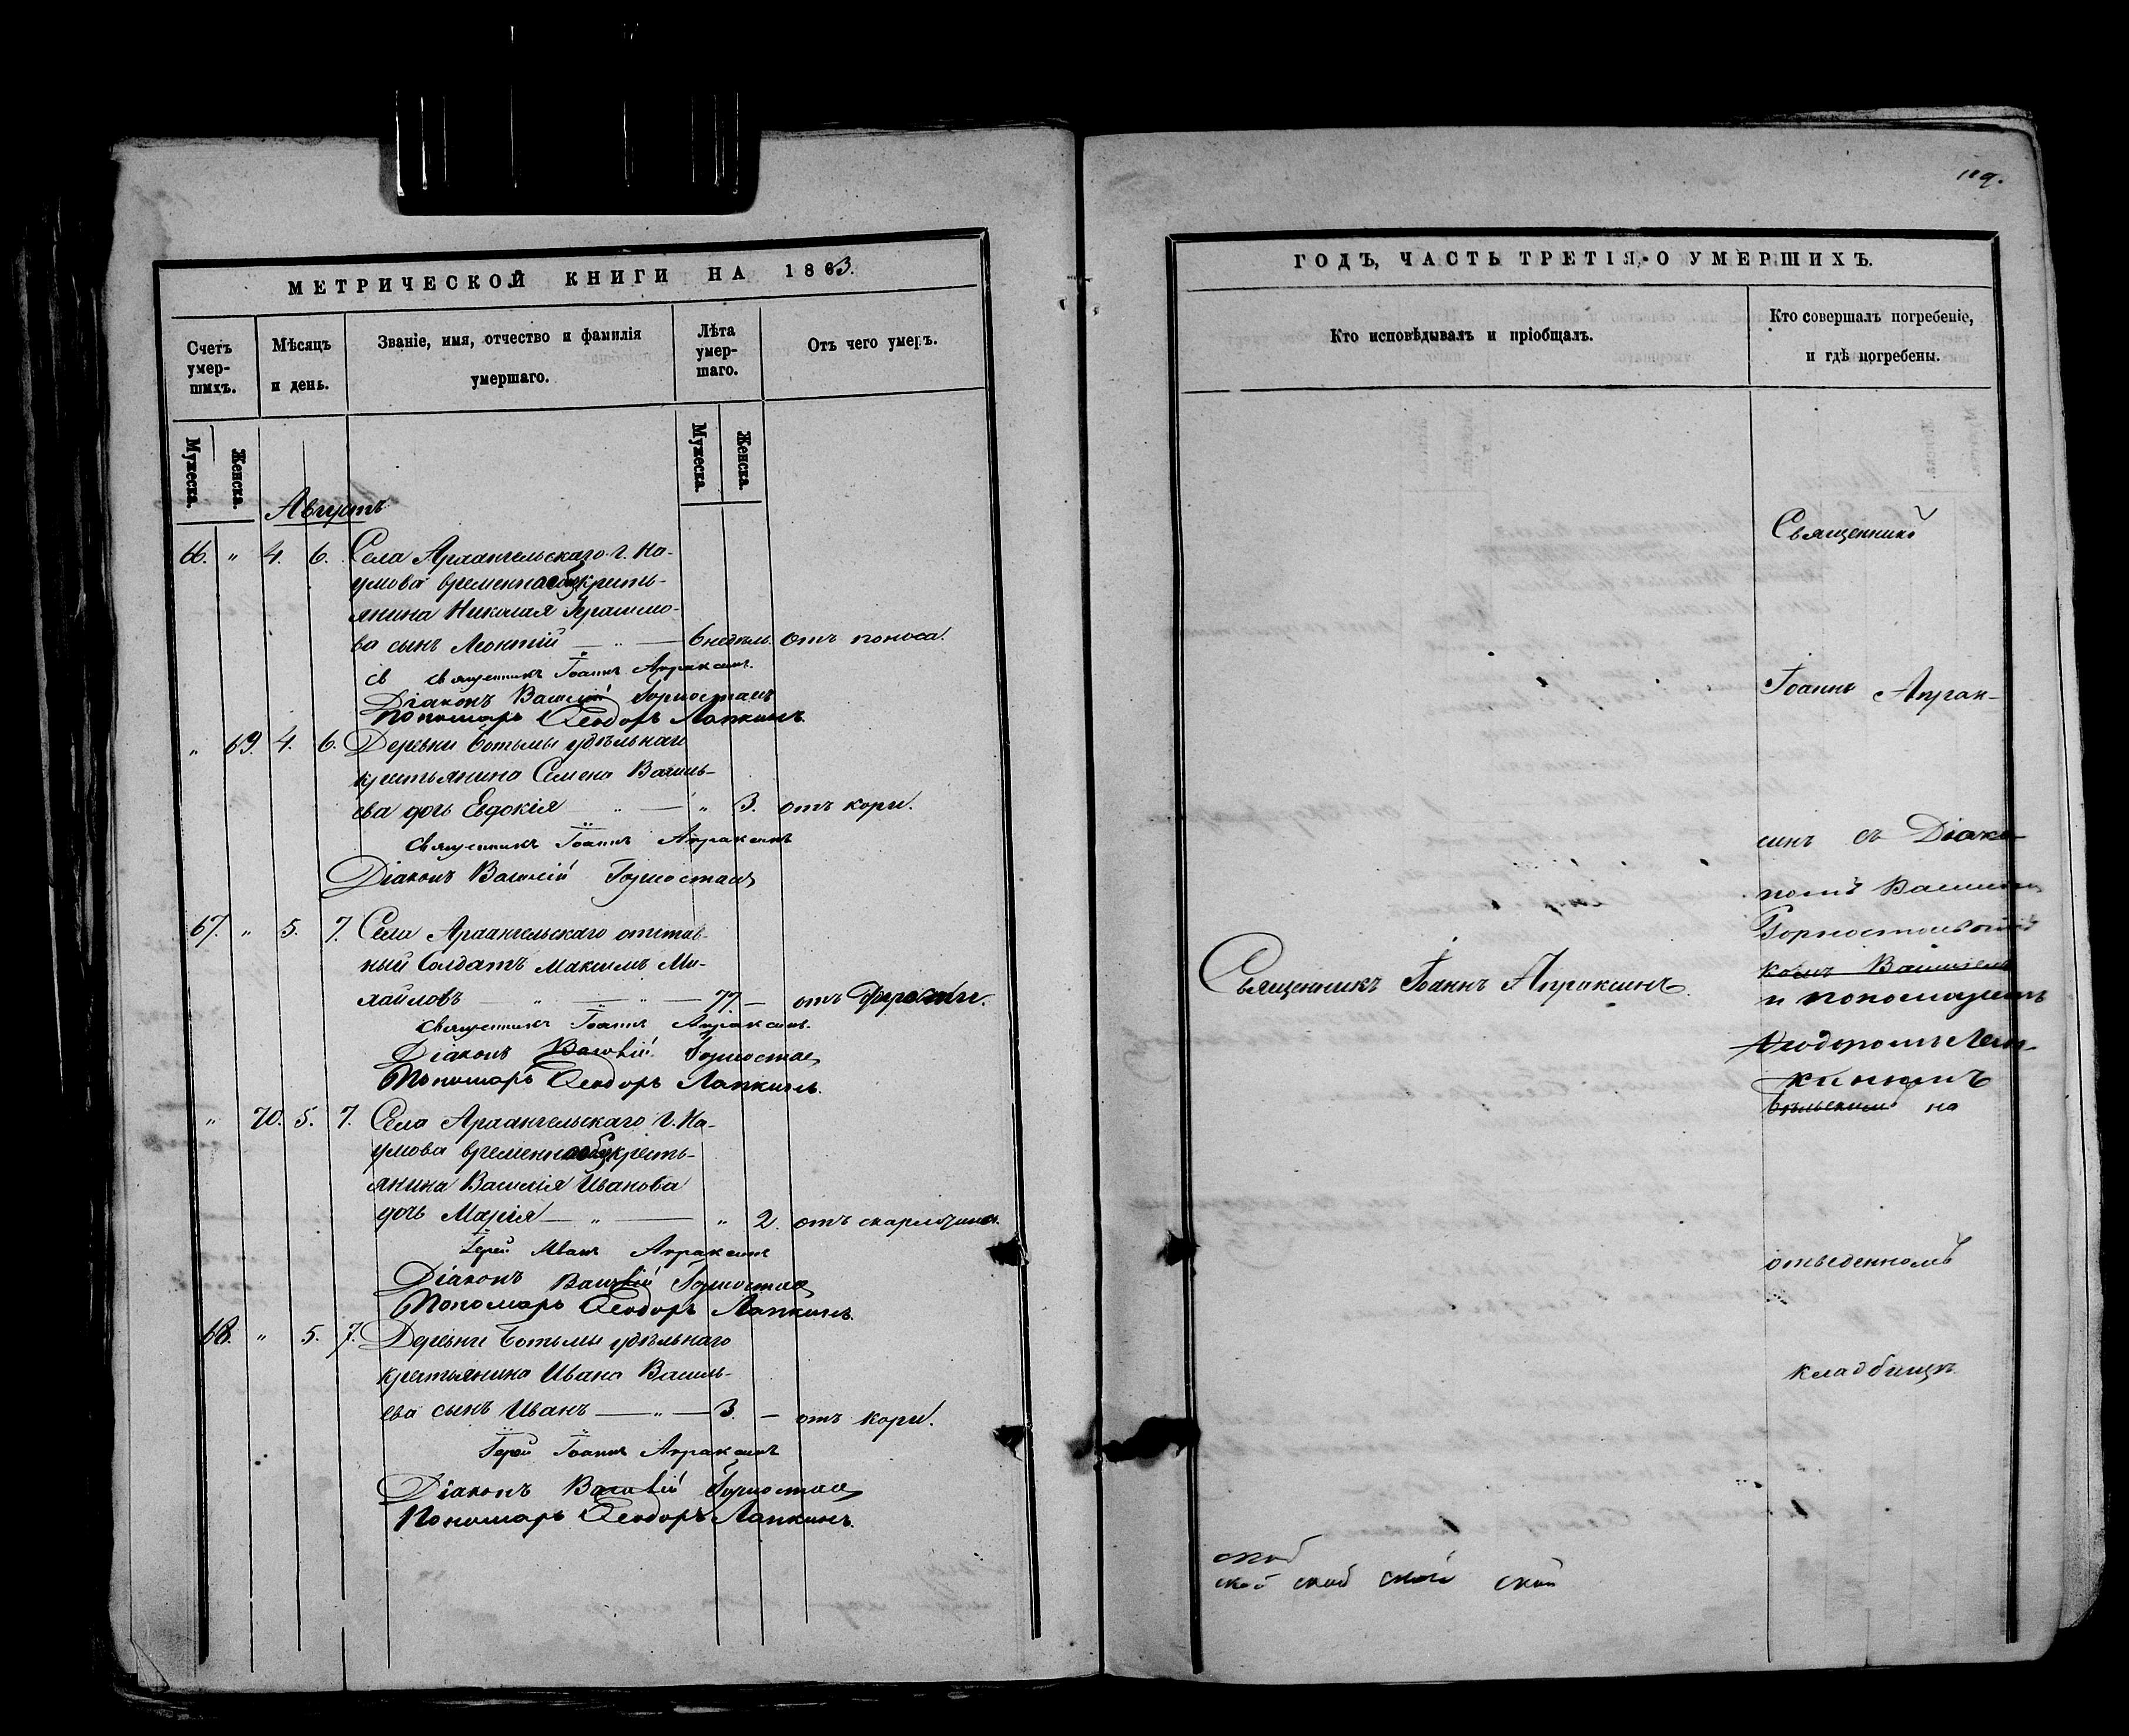 МЕТРИЧЕСКОЙ КНИГИ НА 1863.
Счетъ умер-шихъ.
Мѣсяцъ и день.
Званіе, имя, отчество и фамилія умершаго.
Лѣта умер-шаго.
Отъ чего умеръ.
Мужеска.
Женска.
Мужеска.
Женска.
Августъ
66. " 4. 6. Села Архангельскаго г. На-
умова временнообяз крестъ-
янина Николая
ва сынъ Леонтій — " — 6 недѣль. отъ поноса.
св священникъ Іоаннъ Апраксинъ.
Діаконъ Василій Горностаев
Пономарь Ѳеодоръ Лапкинъ.
" 69. 4. 6. Деревни Ботьмы удѣльнаго
крестьянина Семена Василь-
ева дочь Евдокія " — " 3. отъ кори.
священникъ Іоаннъ Апраксинъ
Діаконъ Василій Горностаев
67. " 5. 7. Села Архангельскаго отстав-
ный Солдатъ Максимъ Ми-
хайловъ — " — " — 77 — отъ старости.
священникъ Іоаннъ Апраксинъ.
Діаконъ Василій Горностаев
Пономарь Ѳеодоръ Лапкинъ.
" 70. 5. 7. Села Архангельскаго г. На-
умова временнообяз крестъ-
янина Василія Иванова
дочь Марія — " — " 2. отъ скарлатины.
Іерей Иванъ Апраксинъ
Діаконъ Василій Горностаев
Пономарь Ѳеодоръ Лапкинъ.
68. " 5. 7. Деревни Ботьмы удѣльнаго
крестьянина Ивана Василь-
ева сынъ Иванъ — " — 3. — отъ кори.
Іерей Іоаннъ Апраксинъ
Діаконъ Василій Горностаев
Пономарь Ѳеодоръ Лапкинъ.
ГОДЪ, ЧАСТЬ ТРЕТІЯ, О УМЕРШИХЪ.
Кто исповѣдывалъ и пріобщалъ.
Кто совершалъ погребеніе,
и гдѣ погребены.
Священникъ
Іоаннъ Апрак-
синъ съ Діако
номъ Василіем
Священникъ Іоаннъ Апраксинъ.
комъ Василіем
и пономаремъ
Ѳеодоромъ Лап-
кинымъ
на
отведенномъ
кладбищѣ.
ской
ской ской ской ской